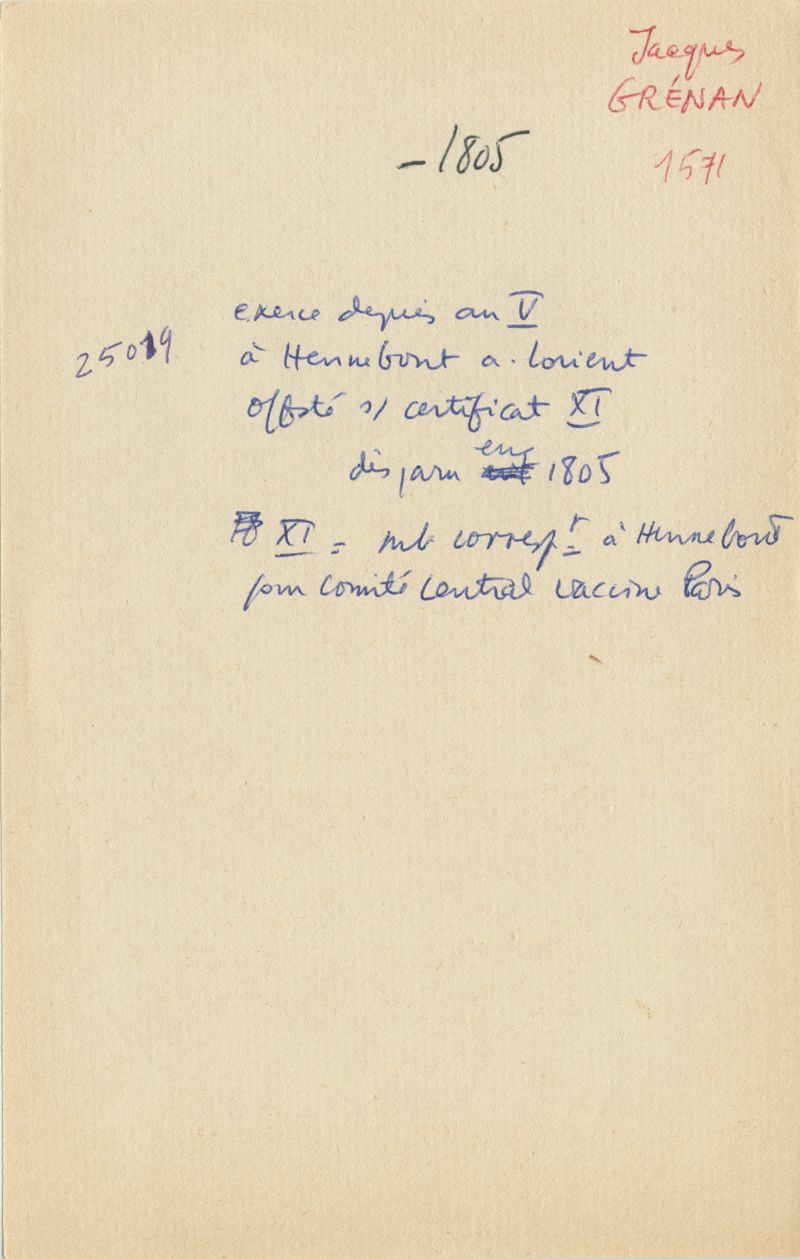 Jacques
GRÉNAN
1571
– 1805
exerce depuis an V
25019
à Hennebont a. Lorient
off sté s/ certificat XI
disparu en 1805
XI = mb correspr à Hennebont
pour Comité Central vaccine Paris